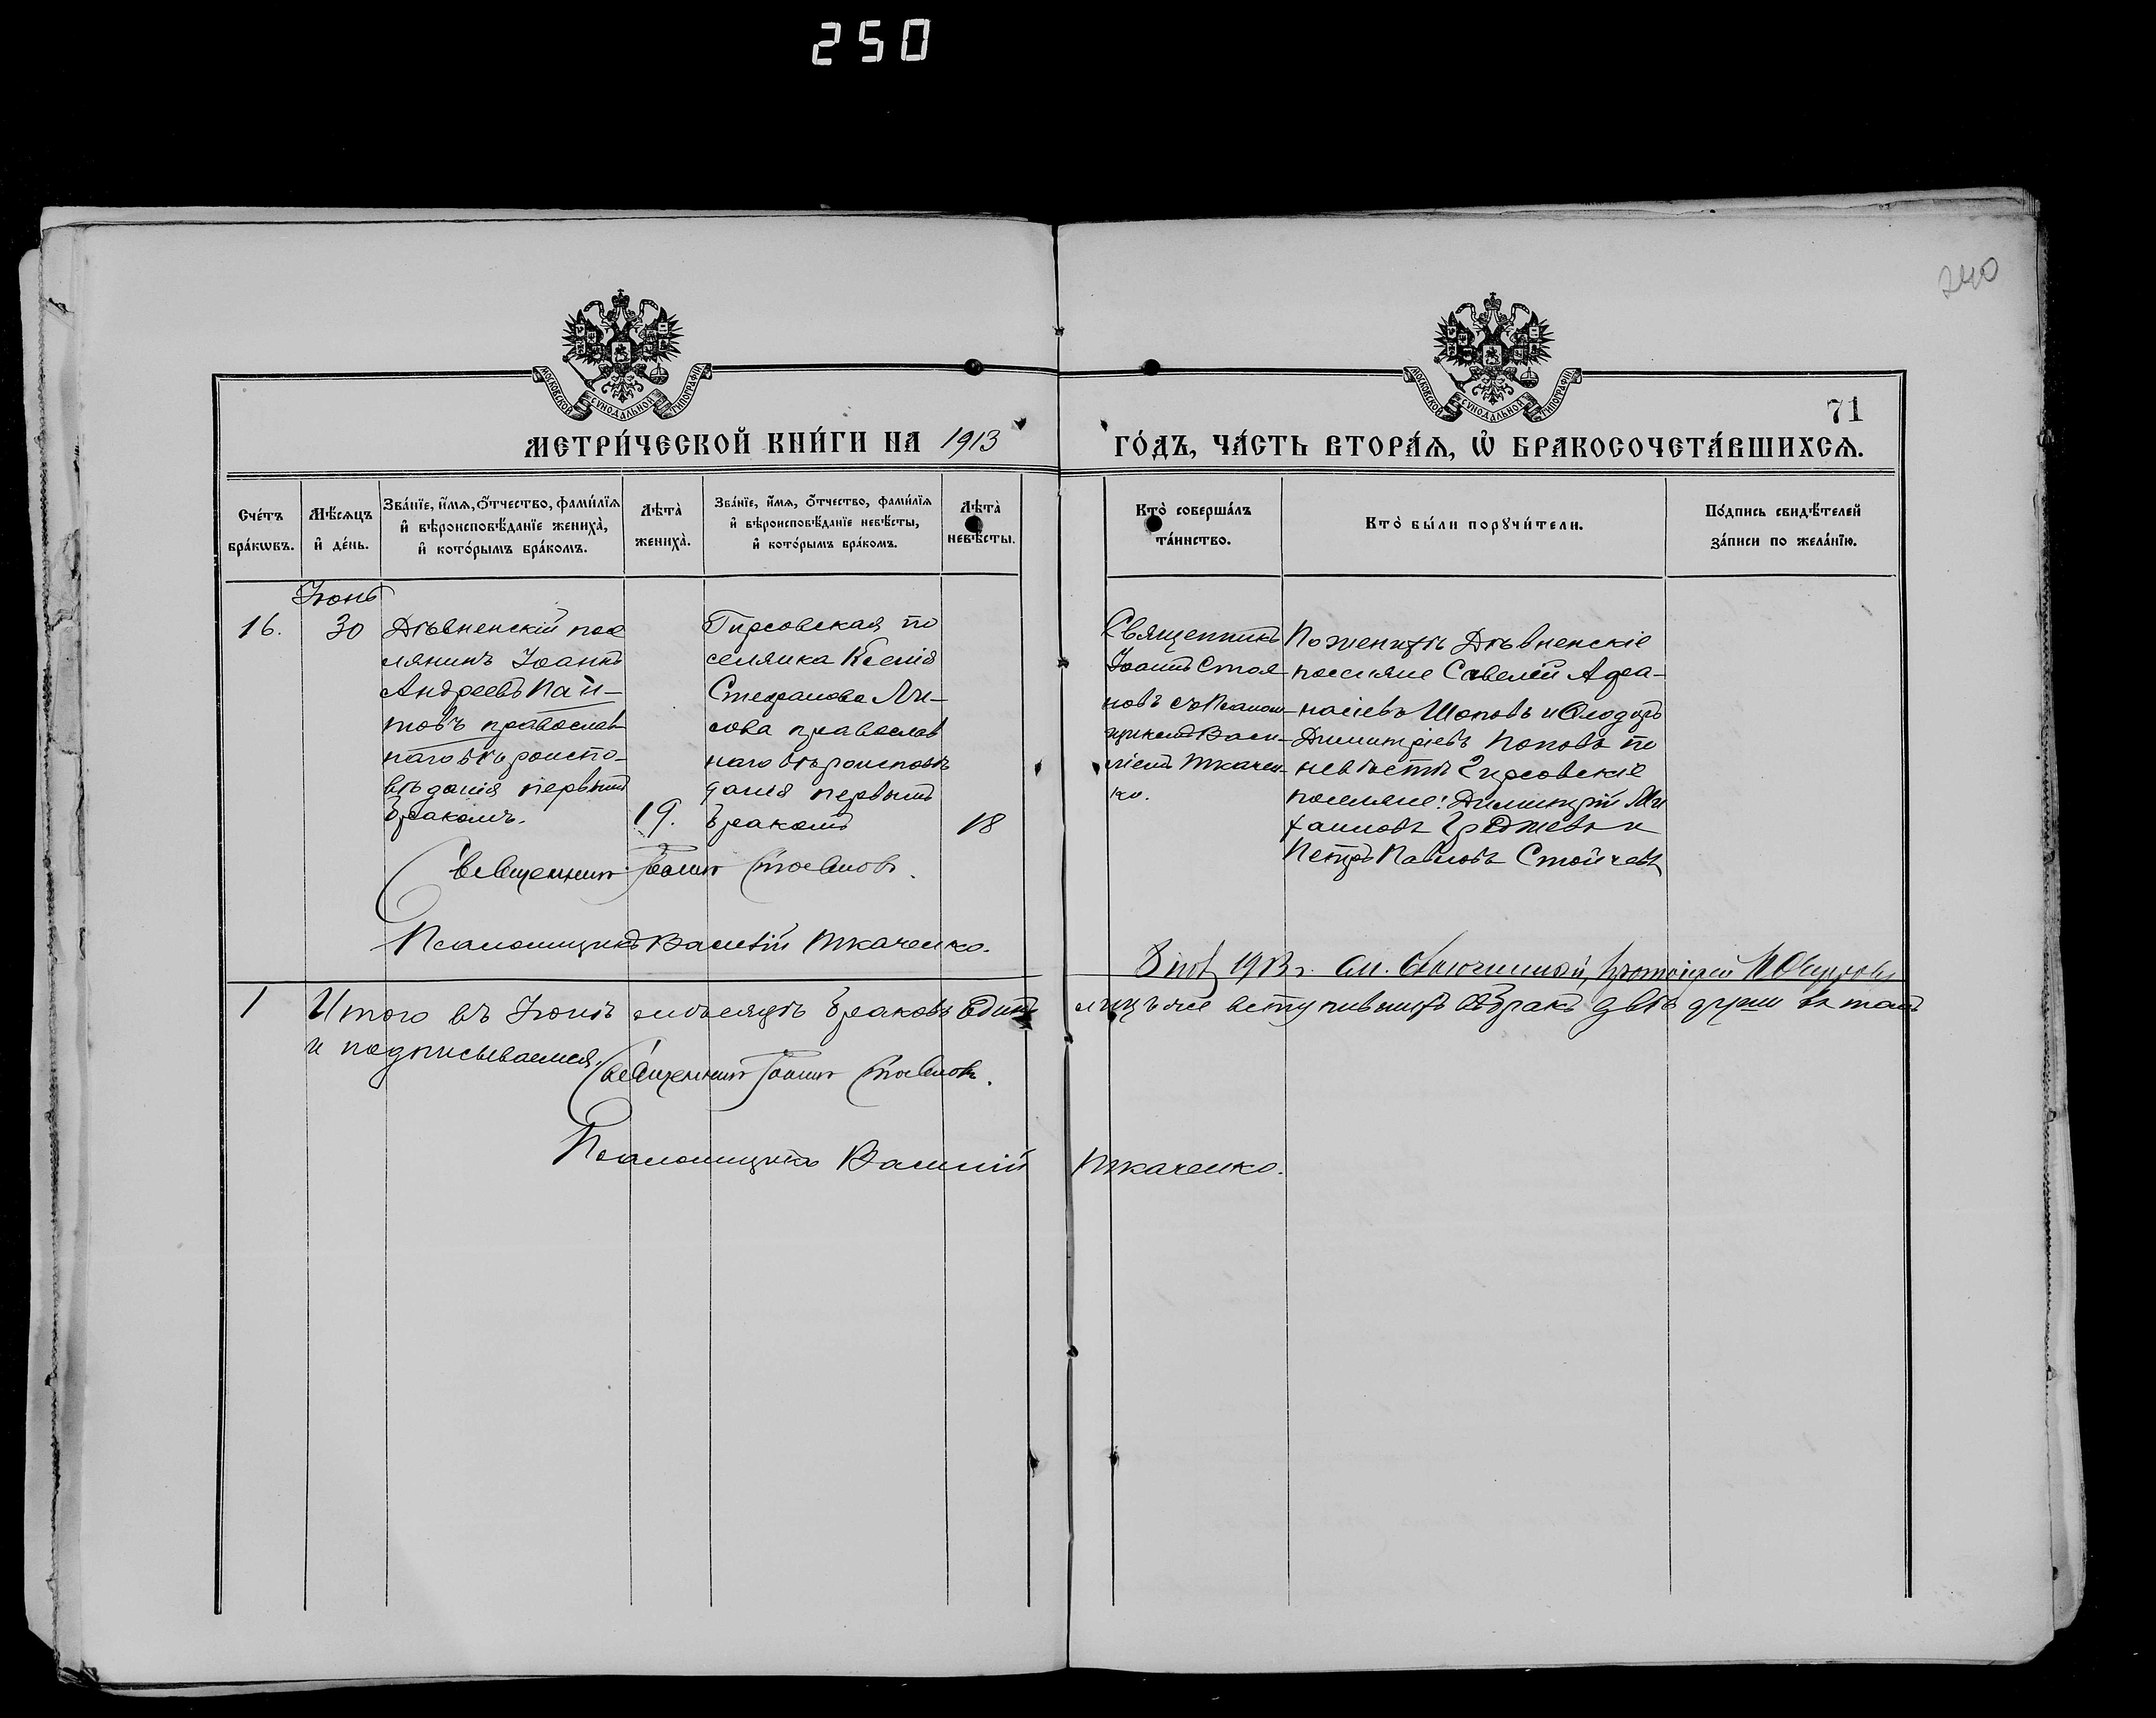 250
240
МОСКОВСКОЙ СУНОДАЛЬНОЙ ТИПОГРАФІИ
МОСКОВСКОЙ СУНОДАЛЬНОЙ ТИПОГРАФІИ
71
МЕТРИ́ЧЕСКОЙ КНИ́ГИ НА 1913
ГО́ДЪ, ЧА́СТЬ ВТОРА́Ѧ, Ѡ҆ БРАКОСОЧЕТА́ВШИХСѦ.
Сче́тъ
бра́кѡвъ.
Мѣ́сѧцъ
и҆ де́нь.
Зва́нїе, и҆́мѧ, ѻ҆́тчество, фами́лїѧ
и҆ вѣроисповѣ́данїе жениха̀,
и҆ кото́рымъ бра́комъ.
Лѣта̀
жениха̀.
Зва́нїе, и҆́мѧ, ѻ҆́тчество, фами́лїѧ
и҆ вѣроисповѣ́данїе невѣ́сты,
и҆ кото́рымъ бра́комъ.
Лѣта̀
невѣ́сты.
Кто̀ соверша́лъ
та́инство.
Кто̀ бы́ли порꙋчи́тели.
По́дпись свидѣ́телей
за́писи по жела́нїю.
Іюнь
16.
30
Дѣвненскій посе
лянинъ Іоаннъ
Андреевъ Пай-
товъ православ
наго вѣроиспо-
вѣданія первымъ
бракомъ.
19.
Гирсовская по
селянка Ксенія
Стефанова Ли-
сова православ
наго вѣроисповѣ
данія первымъ
бракомъ
18
Священникъ
Іоаннъ Стоя
новъ съ Псалом-
щикомъ Васи-
ліемъ Ткачен-
ко.
По женихѣ Дѣвненскіе
поселяне Савелій Афа-
насіевъ Шоповъ и Ѳеодоръ
Димитріевъ Поповъ по
невѣстѣ Гирсовскіе
поселяне: Димитрій Ми
хаиловъ и
Петръ Павловъ Стойчевъ
Священникъ Іоаннъ Стояновъ.
Псаломщикъ Василій Ткаченко.
1913 г. Благочинный, протоіерей
1 Итого въ Іюнѣ мѣсяцѣ браковъ Единъ
лицъ же вступившихъ въ бракъ двѣ души въ томъ
и подписываемся.
Священникъ Іоаннъ Стояновъ.
Псаломщикъ Василій Ткаченко.